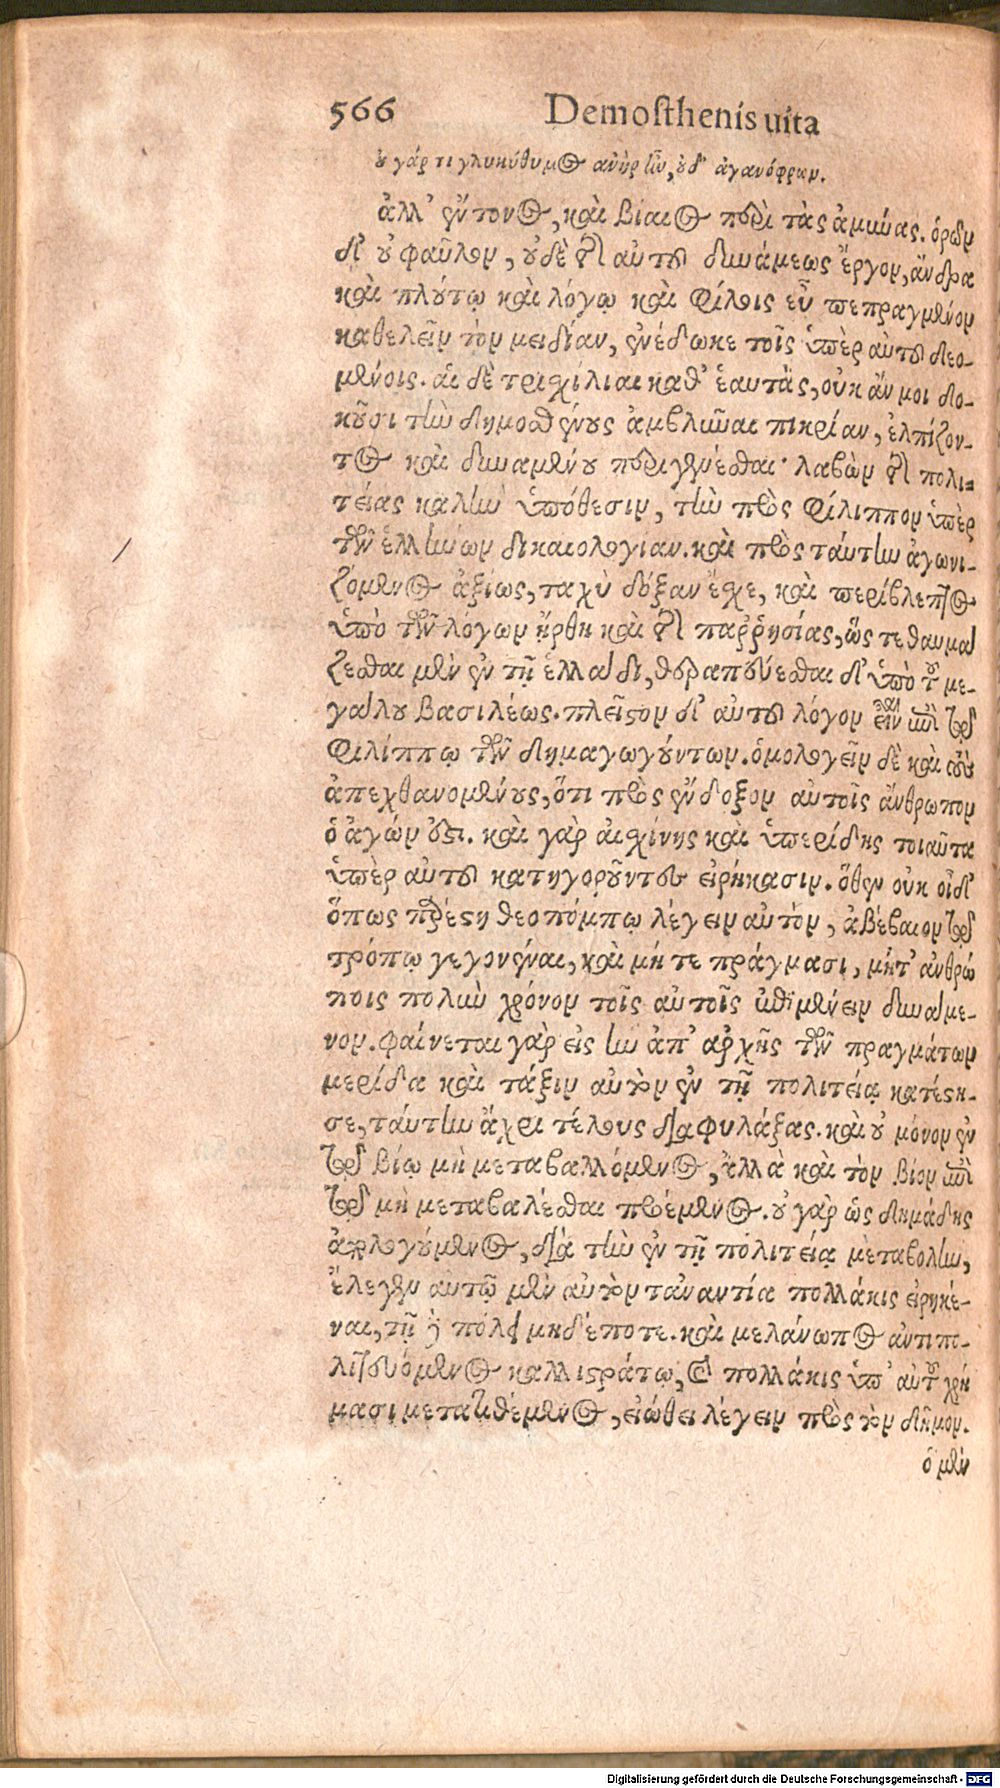 566 Demosthenis uita
οὐ γάρ τι γλυκύθυμος ἀνὴρ ἦν, οὐδ' ἀγανόφρων.
ἀλλ' ἔντονος, καὶ βίαιος περὶ τὰς ἀμύνας. ὁρῶν
δ' οὐ φαῦλον, οὐδὲ τῆς αὐτοῦ δυνάμεως ἔργον, ἄνδρα
καὶ πλούτῳ καὶ λόγῳ καὶ φίλοις εὖ πεπραγμένον
καθελεῖν τὸν μειδίαν, ἐνέδωκε τοῖς ὑπὲρ αὐτοῦ δεο-
μένοις. αἱ δὲ τρισχίλιαι καθ' ἑαυτὰς, οὐκ ἄν μοι δο-
κοῦσι τὴν δημοσθένους ἀμβλῦναι πικρίαν, ἐλπίζον-
τος καὶ δυναμένου περιγενέσθαι· λαβὼν τῆς πολι-
τείας καλὴν ὑπόθεσιν, τὴν πρὸς φίλιππον ὑπὲρ
τῶν ἑλλήνων δικαιολογίαν. καὶ πρὸς ταύτην ἀγωνι-
ζόμενος ἀξίως, ταχὺ δόξαν ἔσχε, καὶ περίβλεπτος
ὑπὸ τῶν λόγων ἤρθη καὶ τῆς παῤῥησίας, ὥς τε θαυμά
ζεσθαι μὲν ἐν τῇ ἑλλάδι, θεραπεύεσθαι δ' ὑπὸ τοῦ με-
γάλου βασιλέως. πλεῖστον δ' αὐτοῦ λόγον εἶναι παρὰ τῷ
φιλίππῳ τῶν δημαγωγούντων. ὁμολογεῖν δὲ καὶ τοὺς
ἀπεχθανομένους, ὅτι πρὸς ἔνδοξον αὐτοῖς ἄνθρωπον
ὁ ἀγών ἐστι. καὶ γὰρ αἰσχίνης καὶ ὑπερίδης τοιαῦτα
ὑπὲρ αὐτοῦ κατηγοροῦντες εἰρήκασιν. ὅθεν οὐκ οἶδ'
ὅπως παρέστη θεοπόμπῳ λέγειν αὐτὸν, ἀβέβαιον τῷ
τρόπῳ γεγονέναι, καὶ μήτε πράγμασι, μήτ' ἀνθρώ
ποις πολὺν χρόνον τοῖς αὐτοῖς ἐπιμένειν δυνάμε-
νον. φαίνεται γὰρ εἰς ἣν ἀπ' ἀρχῆς τῶν πραγμάτων
μερίδα καὶ τάξιν αὑτὸν ἐν τῇ πολιτείᾳ κατέστη-
σε, ταύτην ἄχρι τέλους διαφυλάξας. καὶ οὐ μόνον ἐν
τῷ βίῳ μὴ μεταβαλλόμενος, ἀλλὰ καὶ τὸν βίον ἐπὶ
τῷ μὴ μεταβαλέσθαι προέμενος. οὐ γὰρ ὡς δημάδης
ἀπολογούμενος, διὰ τὴν ἐν τῇ πολιτείᾳ μεταβολὴν,
ἔλεγεν αὑτῷ μὲν αὐτὸν τἀναντία πολλάκις εἰρηκέ-
ναι, τῇ δὲ πόλει μηδέποτε. καὶ μελάνωπος ἀντιπο-
λιτευόμενος καλλιστράτῳ, καὶ πολλάκις ὑπ' αὐτοῦ χρή
μασι μετατιθέμενος, εἰώθει λέγειν πρὸς τὸν δῆμον.
ὁ μὲν
Digitalisierung gefördert durch die Deutsche Forschungsgemeinschaft - DFG